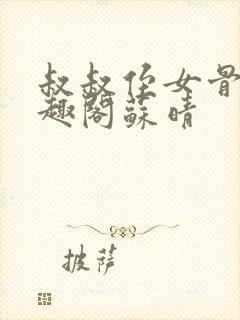 叔叔侄女骨
趣阁苏晴
披萨